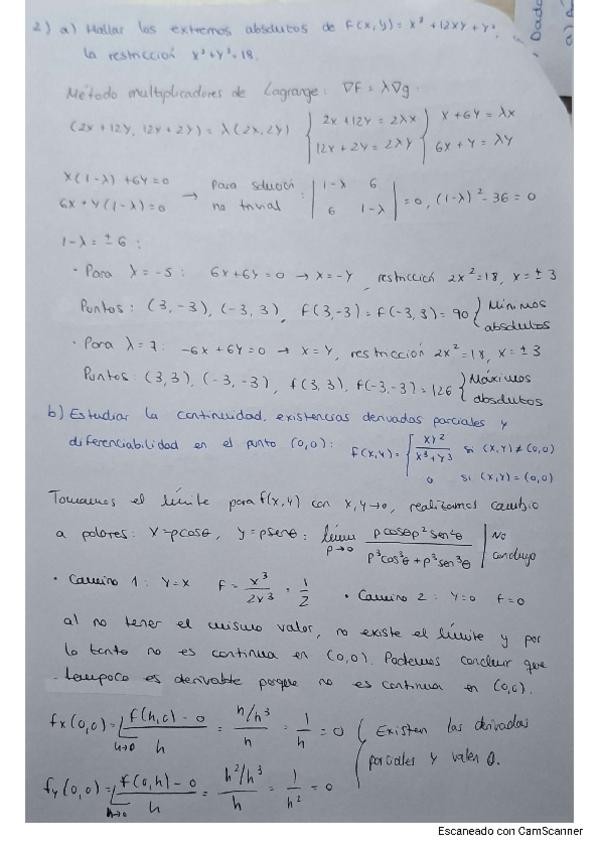 2) a) Hallar los extremos absolutos de f(x,y) = x² + 12xy + y²,
la restricción x² + y² = 18.
Método multiplicadores de Lagrange: ∇F = λ∇g.
(2x + 12y, 12x + 2y) = λ(2x, 2y) { 2x + 12y = 2λx { x + 6y = λx
12x + 2y = 2λy 6x + y = λy
x(1-λ) + 6y = 0
6x + y(1-λ) = 0 → Para solución no trivial: | 1-λ 6 | = 0, (1-λ)² - 36 = 0
| 6 1-λ |
1-λ = ± 6 :
· Para λ = -5 : 6x + 6y = 0 → x = -y, restricción 2x² = 18, x = ± 3
Puntos: (3, -3), (-3, 3), f(3, -3) = f(-3, 3) = 90 { Mínimos absolutos
· Para λ = 7 : -6x + 6y = 0 → x = y, restricción 2x² = 18, x = ± 3
Puntos: (3, 3), (-3, -3), f(3, 3), f(-3, -3) = 126 { Máximos absolutos
b) Estudiar la continuidad, existencias derivadas parciales y
diferenciabilidad en el punto (0,0): f(x,y) = { xy² / x³ + y³ si (x,y) ≠ (0,0)
0 si (x,y) = (0,0)
Tomamos el límite para f(x,y) con x,y → 0, realizamos cambio
a polares: x = ρcosθ, y = ρsenθ : lím ρ→0 ρcosθ ρ² sen²θ / ρ³cos³θ + ρ³sen³θ | No concluyo
· Camino 1 : y = x F = x³ / 2x³ = 1/2 · Camino 2 : y = 0 f = 0
al no tener el mismo valor, no existe el límite y por
lo tanto no es continua en (0,0). Podemos concluir que
tampoco es derivable porque no es continua en (0,0).
fx(0,0) = L h→0 f(h,0) - 0 / h = h/h³ / h = 1/h = 0 { Existen las derivadas
parciales y valen 0.
fy(0,0) = L h→0 f(0,h) - 0 / h = h²/h³ / h = 1/h² = 0
Dado
a)
Escaneado con CamScanner